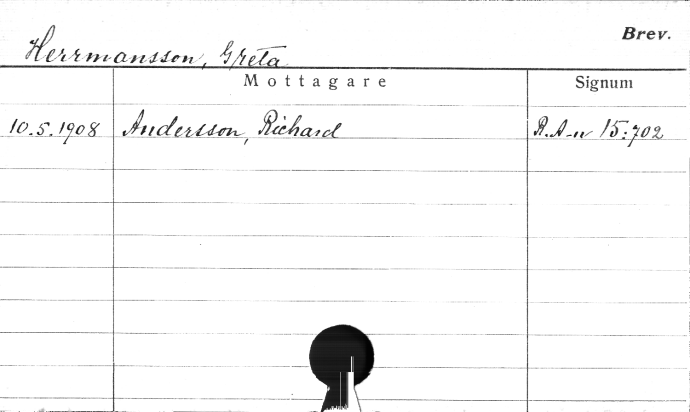 Brev.
Herrmansson, Greta
Mottagare Signum
10.5.1908 Andersson, Richard R.A-n 15:702